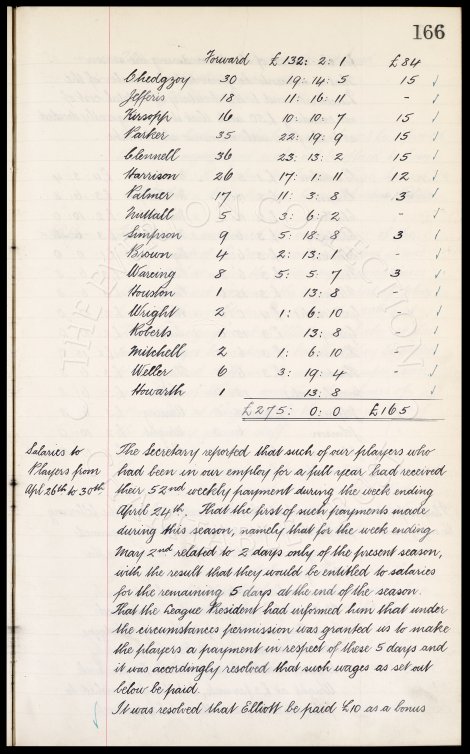 166
Forward £132: 2: 1 £84
Chedgzoy 30 19: 14: 5 15 ✓
Jefferis 18 11: 16: 11 - ✓
Kirsopp 16 10: 10: 7 15 ✓
Parker 35 22: 19: 9 15 ✓
Clennell 36 23: 13: 2 15 ✓
Harrison 26 17: 1: 11 12 ✓
Palmer 17 11: 3: 8 3 ✓
Nuttall 5 3: 6: 2 - ✓
Simpson 9 5: 18: 8 3 ✓
Brown 4 2: 13: 1 - ✓
Wareing 8 5: 5: 7 3 ✓
Houston 1 13: 8 ✓
Wright 2 1: 6: 10 - ✓
Roberts 1 13: 8 ✓
Mitchell 2 1: 6: 10 - ✓
Weller 6 3: 19: 4 - ✓
Howarth 1 13: 8 ✓
£275: 0: 0 £165
Salaries to
Players from
Apl 26th to 30th
The Secretary reported that such of our players who
had been in our employ for a full year had received
their 52nd weekly payment during the week ending
April 24th. That the first of such payments made
during this season, namely that for the week ending
May 2nd related to 2 days only of the present season,
with the result that they would be entitled to salaries
for the remaining 5 days at the end of the season.
That the League President had informed him that under
the circumstances permission was granted us to make
the players a payment in respect of these 5 days and
it was accordingly resolved that such wages as set out
below be paid.
It was resolved that Elliott be paid £10 as a bonus